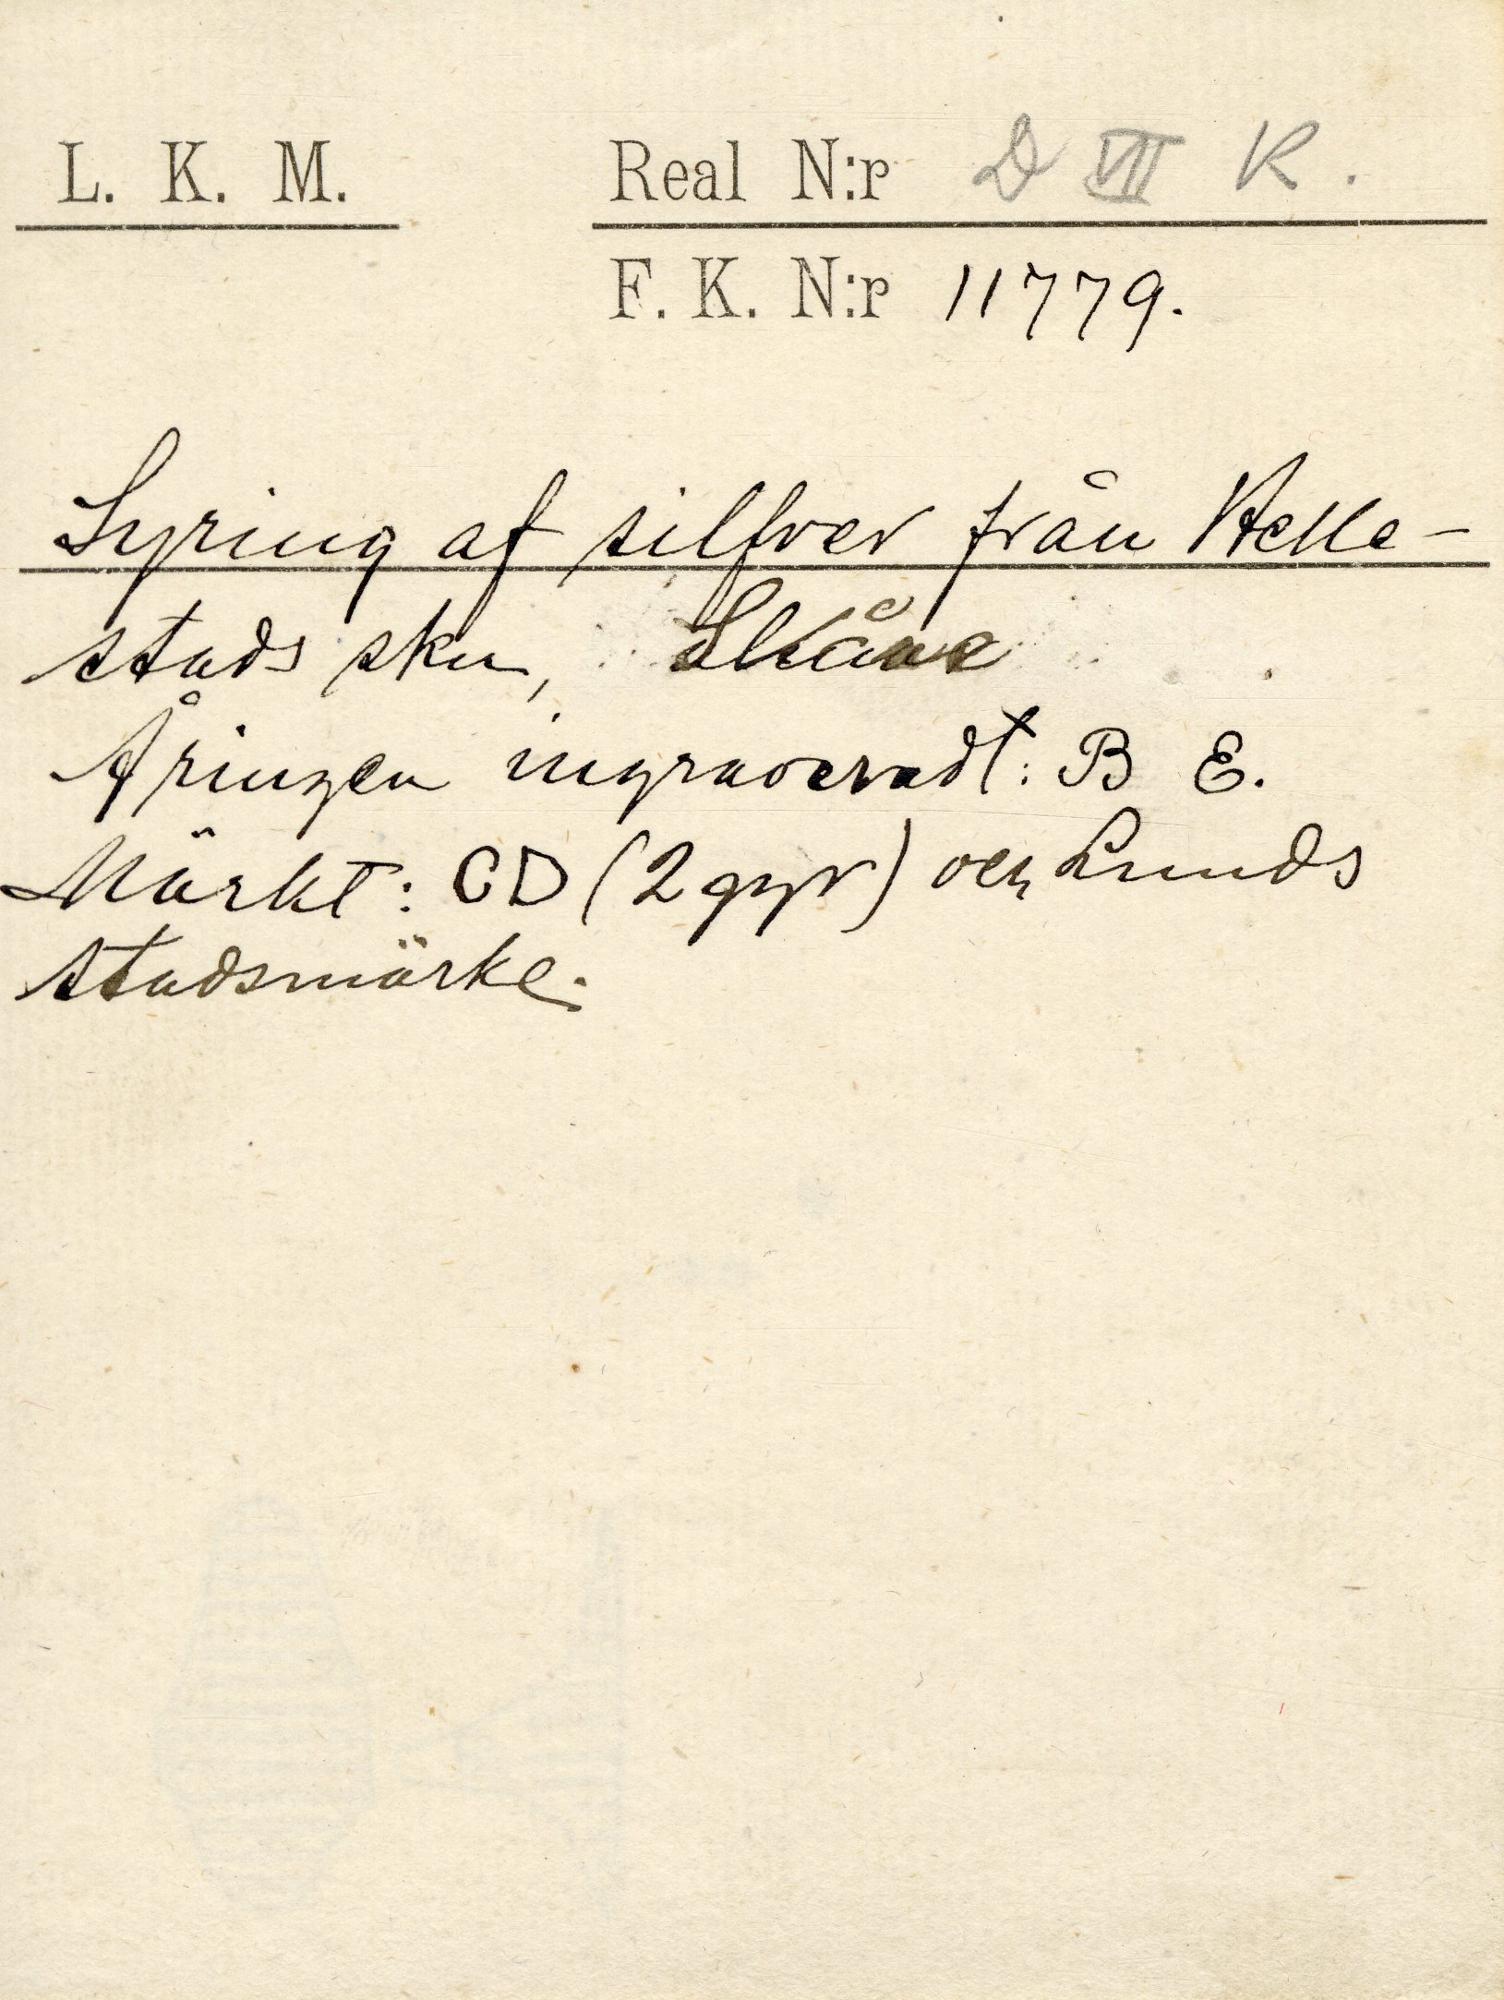 L. K. M. Real N:r D VII K.
F. K. N:r 11779.
Syring af silfver från Helle-
stads skn, Skåne
Å ringen ingraveradt: B E.
Märkt: CD (2 ggr) och Lunds
stadsmärke.